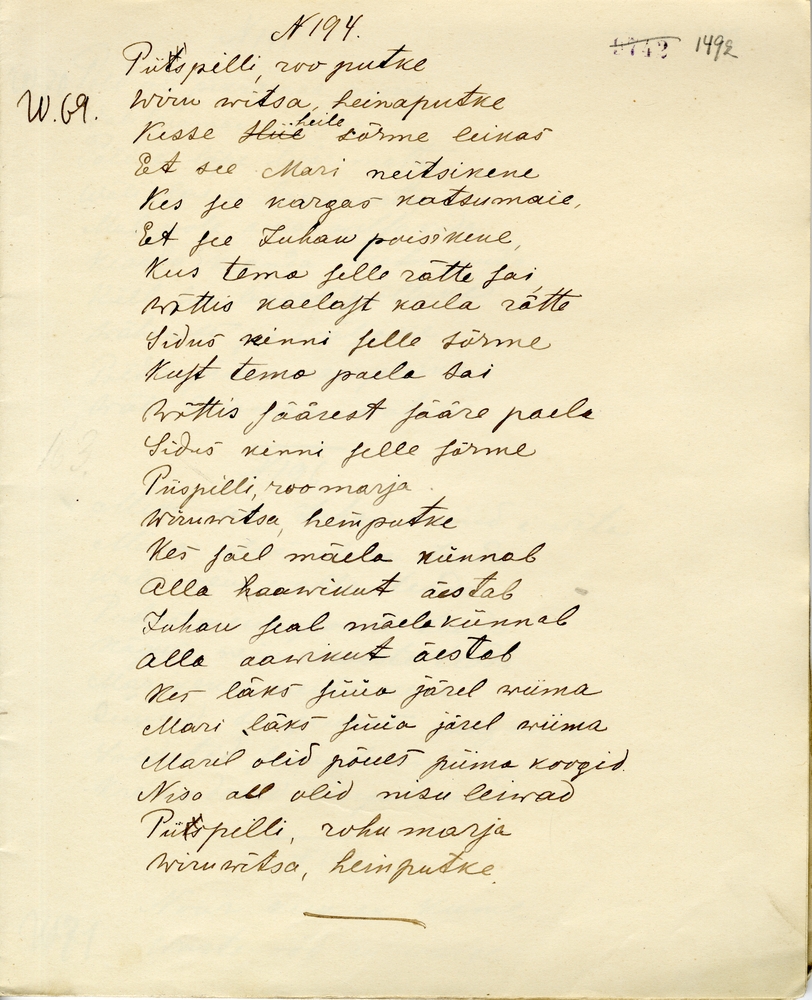 N 194.
1492
Piitspilli, roo putke
W. 69.
Wiru witsa, heinaputke
Kesse heile sõrme leikas
Et see Mari neitsikene
Kes see kargas katsumaie,
Et see Juhan poisikene,
Kus tema selle rätte sai,
Wõttis kaelast kaela rätte
Sidus kinni selle sõrme
Kust tema paela sai
Wõttis säärest sääre paela
Sidus kinni selle sõrme
Piispilli, roomarja
Wiruwitsa, heinputke
Kes säel mäela künnab
Alla haawikut äestab
Juhan seal mäela künnab
Alla aawikut äestab
Kes läks süüa järel wiima
Mari läks süüa järel wiima
Maril olid põues piima koogid.
Nisa all olid nisu leiwad
Piitspilli, rohu marja
Wiruwitsa, heinputke.